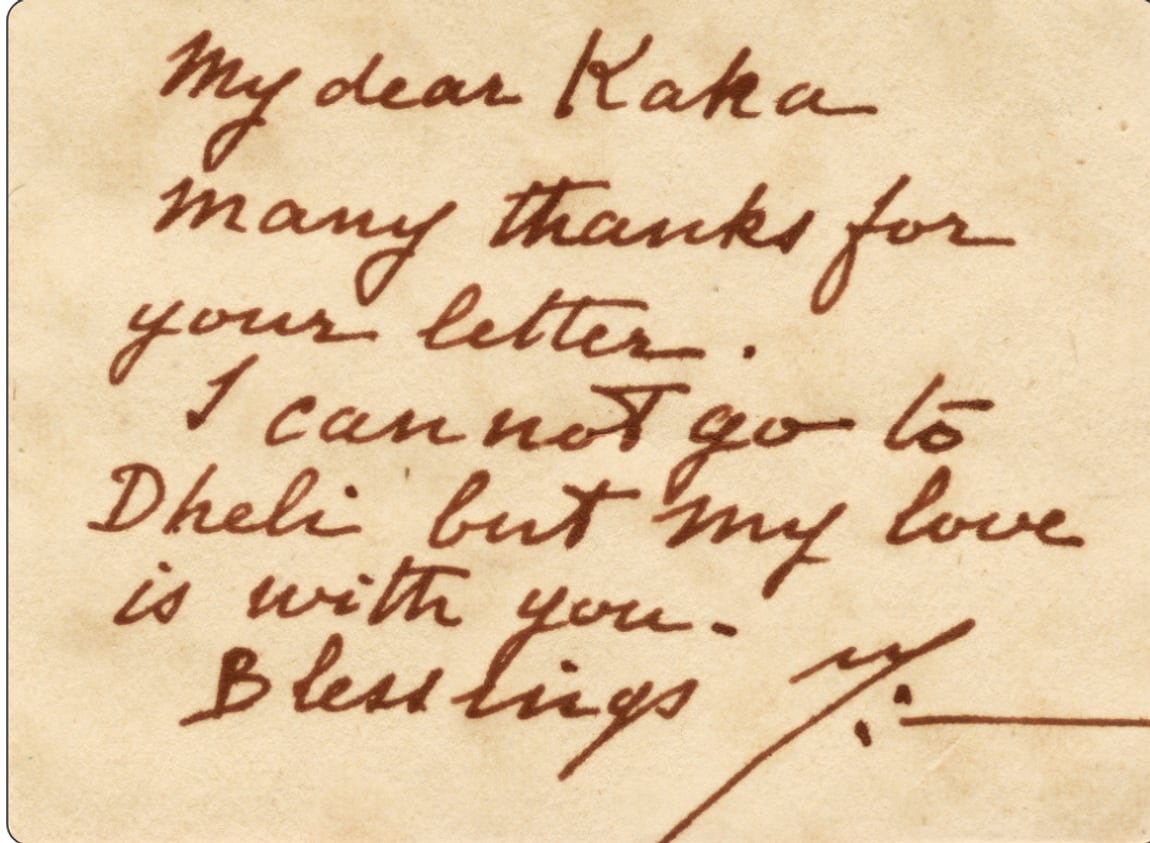 My dear Kaka
many thanks for
your letter.
I cannot go to
Dheli but my love
is with you.
Blessings